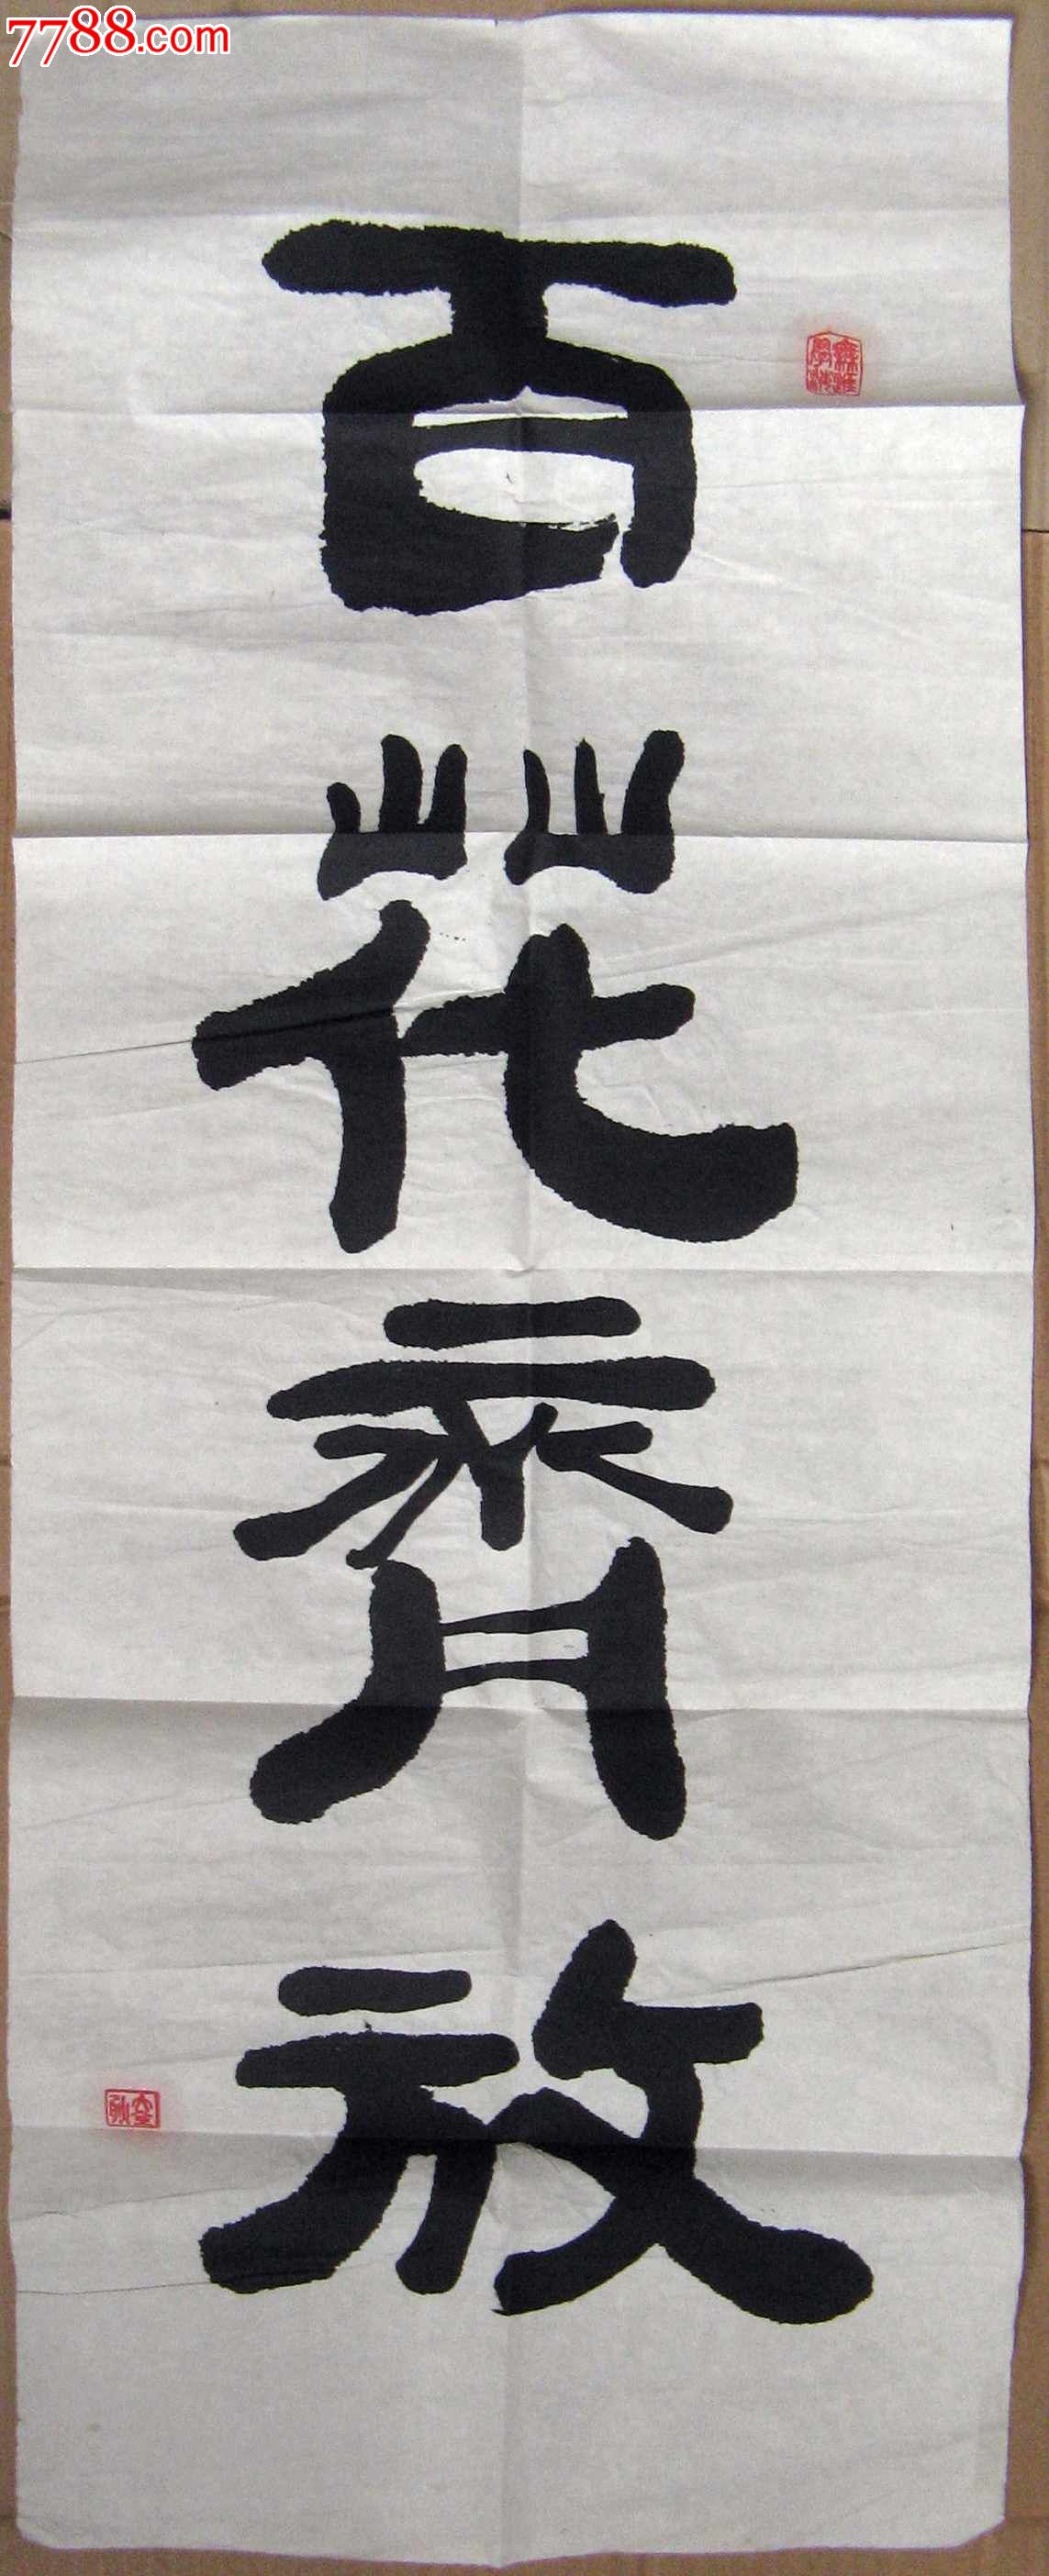 7788.com
百花齊放